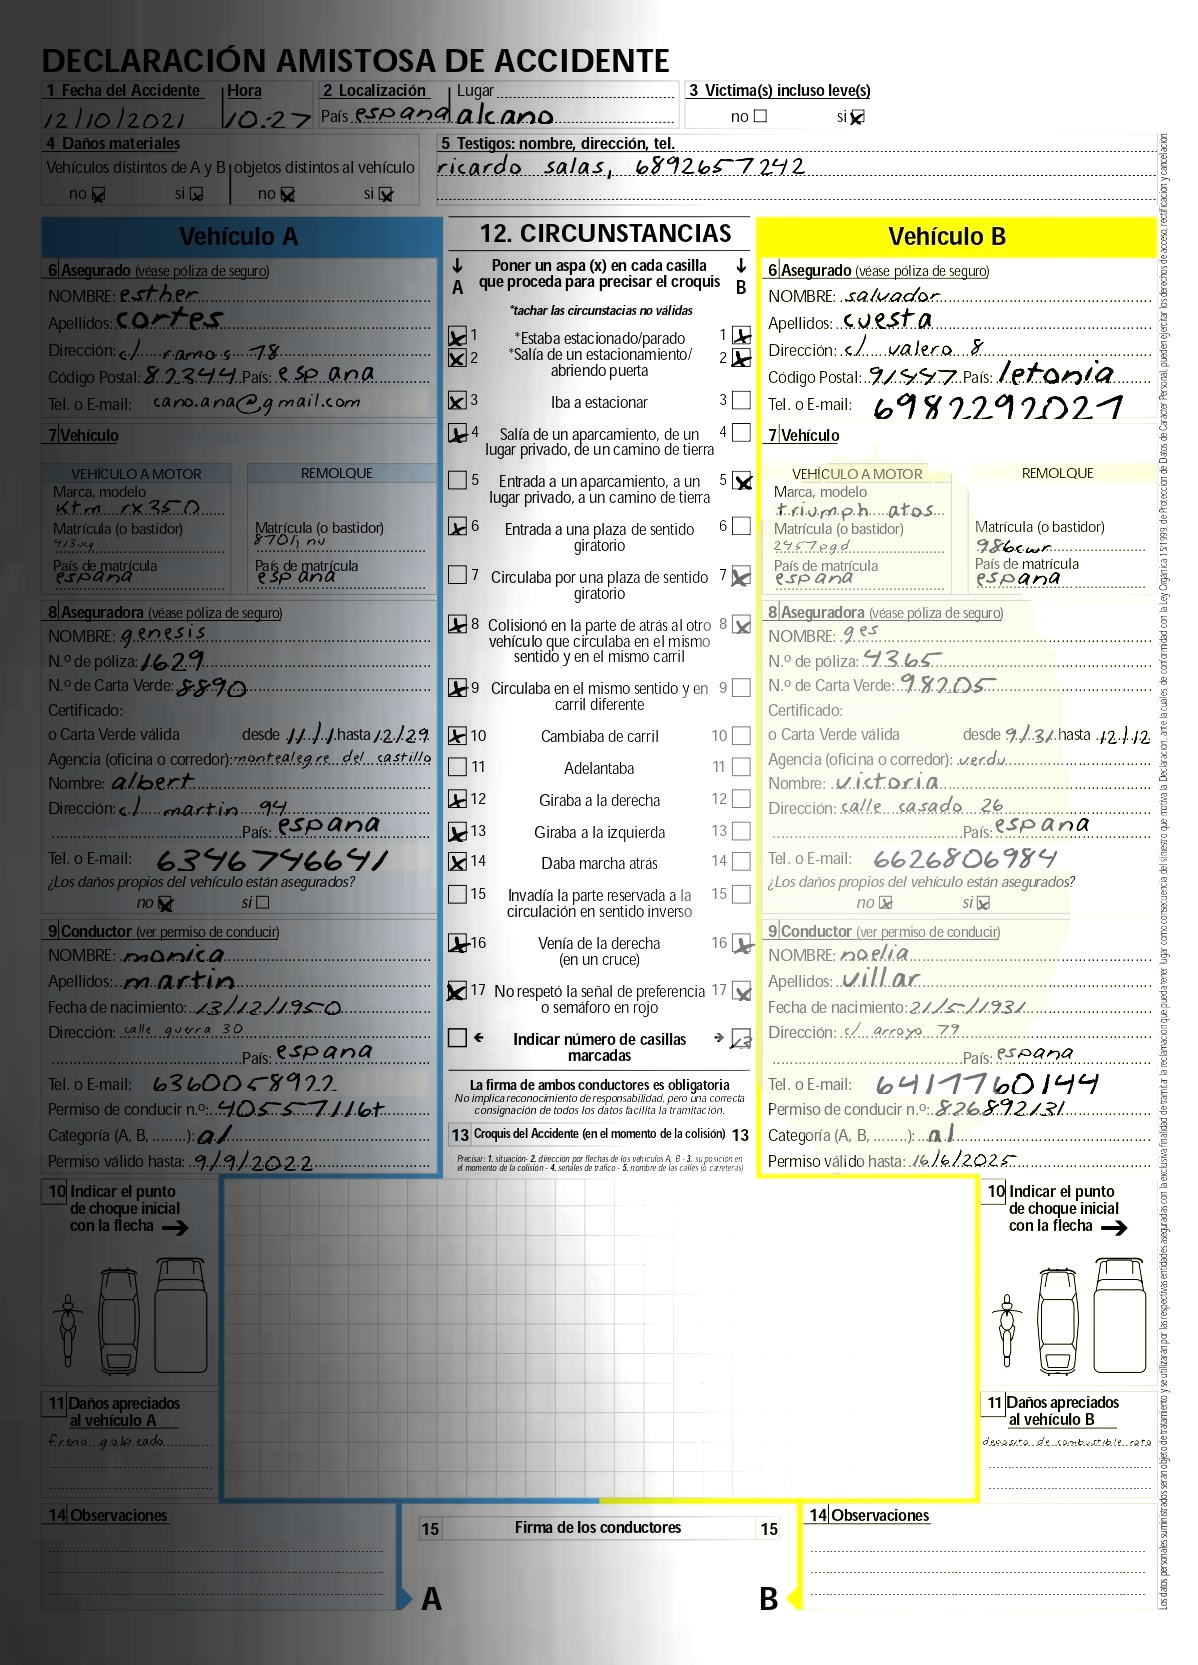 DECLARACIÓN AMISTOSA DE ACCIDENTE
1 Fecha del Accidente Hora 2 Localización Lugar 3 Victima(s) incluso leve(s)
12/10/2021 10.27 País espana alcano no si
4 Daños materiales 5 Testigos: nombre, dirección, tel.
Vehículos distintos de A y B objetos distintos al vehículo ricardo salas, 6892657242
no si no si
Vehículo A
6 Asegurado (véase póliza de seguro)
NOMBRE: esther
Apellidos: cortes
Dirección: c/ ramos 78
Código Postal: 82344 País: espana
Tel. o E-mail: cano.ana@gmail.com
7 Vehículo
VEHÍCULO A MOTOR REMOLQUE
Marca, modelo
ktm rx350
Matrícula (o bastidor) Matrícula (o bastidor)
413ucg 8701jnv
País de matrícula País de matrícula
espana espana
8 Aseguradora (véase póliza de seguro)
NOMBRE: genesis
N.º de póliza: 1629
N.º de Carta Verde: 8890
Certificado:
o Carta Verde válida desde 11/1 hasta 12/29
Agencia (oficina o corredor): montealegre del castillo
Nombre: albert
Dirección: c/ martin 94
País: espana
Tel. o E-mail: 6346746641
¿Los daños propios del vehículo están asegurados?
no si
9 Conductor (ver permiso de conducir)
NOMBRE: monica
Apellidos: martin
Fecha de nacimiento: 13/12/1950
Dirección: calle guerra 30
País: espana
Tel. o E-mail: 6360058922
Permiso de conducir n.º: 40557116t
Categoría (A, B, ........): al
Permiso válido hasta: 9/9/2022
12. CIRCUNSTANCIAS
A Poner un aspa (x) en cada casilla que proceda para precisar el croquis B
*tachar las circunstacias no válidas
1 *Estaba estacionado/parado 1
2 *Salía de un estacionamiento/ 2
abriendo puerta
3 Iba a estacionar 3
4 Salía de un aparcamiento, de un 4
lugar privado, de un camino de tierra
5 Entrada a un aparcamiento, a un 5
lugar privado, a un camino de tierra
6 Entrada a una plaza de sentido 6
giratorio
7 Circulaba por una plaza de sentido 7
giratorio
8 Colisionó en la parte de atrás al otro 8
vehículo que circulaba en el mismo
sentido y en el mismo carril
9 Circulaba en el mismo sentido y en 9
carril diferente
10 Cambiaba de carril 10
11 Adelantaba 11
12 Giraba a la derecha 12
13 Giraba a la izquierda 13
14 Daba marcha atrás 14
15 Invadía la parte reservada a la 15
circulación en sentido inverso
16 Venía de la derecha 16
(en un cruce)
17 No respetó la señal de preferencia 17
o semáforo en rojo
Indicar número de casillas 13
marcadas
La firma de ambos conductores es obligatoria
No implica reconocimiento de responsabilidad, pero una correcta
consignación de todos los datos facilita la tramitación.
13 Croquis del Accidente (en el momento de la colisión) 13
Precisar: 1. situación- 2. dirección por flechas de los vehículos A, B - 3. su posición en
el momento de la colisión - 4. señales de tráfico - 5. nombre de las calles (o carreteras)
Vehículo B
6 Asegurado (véase póliza de seguro)
NOMBRE: salvador
Apellidos: cuesta
Dirección: c/ valero 8
Código Postal: País: letonia
Tel. o E-mail: 6982292021
7 Vehículo
VEHÍCULO A MOTOR REMOLQUE
Marca, modelo
triumph atos
Matrícula (o bastidor) Matrícula (o bastidor)
2457pgd 986cwr
País de matrícula País de matrícula
espana espana
8 Aseguradora (véase póliza de seguro)
NOMBRE: ges
N.º de póliza: 4365
N.º de Carta Verde: 98205
Certificado:
o Carta Verde válida desde 9/31 hasta 12/12
Agencia (oficina o corredor): verdu
Nombre: victoria
Dirección: calle casado 26
País: espana
Tel. o E-mail: 6626806984
¿Los daños propios del vehículo están asegurados?
no si
9 Conductor (ver permiso de conducir)
NOMBRE: noelia
Apellidos: villar
Fecha de nacimiento: 21/5/1931
Dirección: c/ arroyo 79
País: espana
Tel. o E-mail: 6417760144
Permiso de conducir n.º: 826892131
Categoría (A, B, ........): al
Permiso válido hasta: 16/6/2025
10 Indicar el punto
de choque inicial
con la flecha
11 Daños apreciados
al vehículo A
freno golpeado
14 Observaciones
10 Indicar el punto
de choque inicial
con la flecha
11 Daños apreciados
al vehículo B
deposito de combustible roto
15 Firma de los conductores 15
A B
14 Observaciones
Los datos personales suministrados seran objeto de tratamiento y se utilizaran por las respectivas entidades aseguradas con la exclusiva finalidad de tramitar la reclamacion que pueda tener lugar como consecuencia del siniestro que motiva la Declaracion, ante la cuales, de conformidad con la Ley Organica 15/1999, de Proteccion de Datos de Caracter Personal, pueden ejercitar los derechos de acceso, rectificación y cancelación